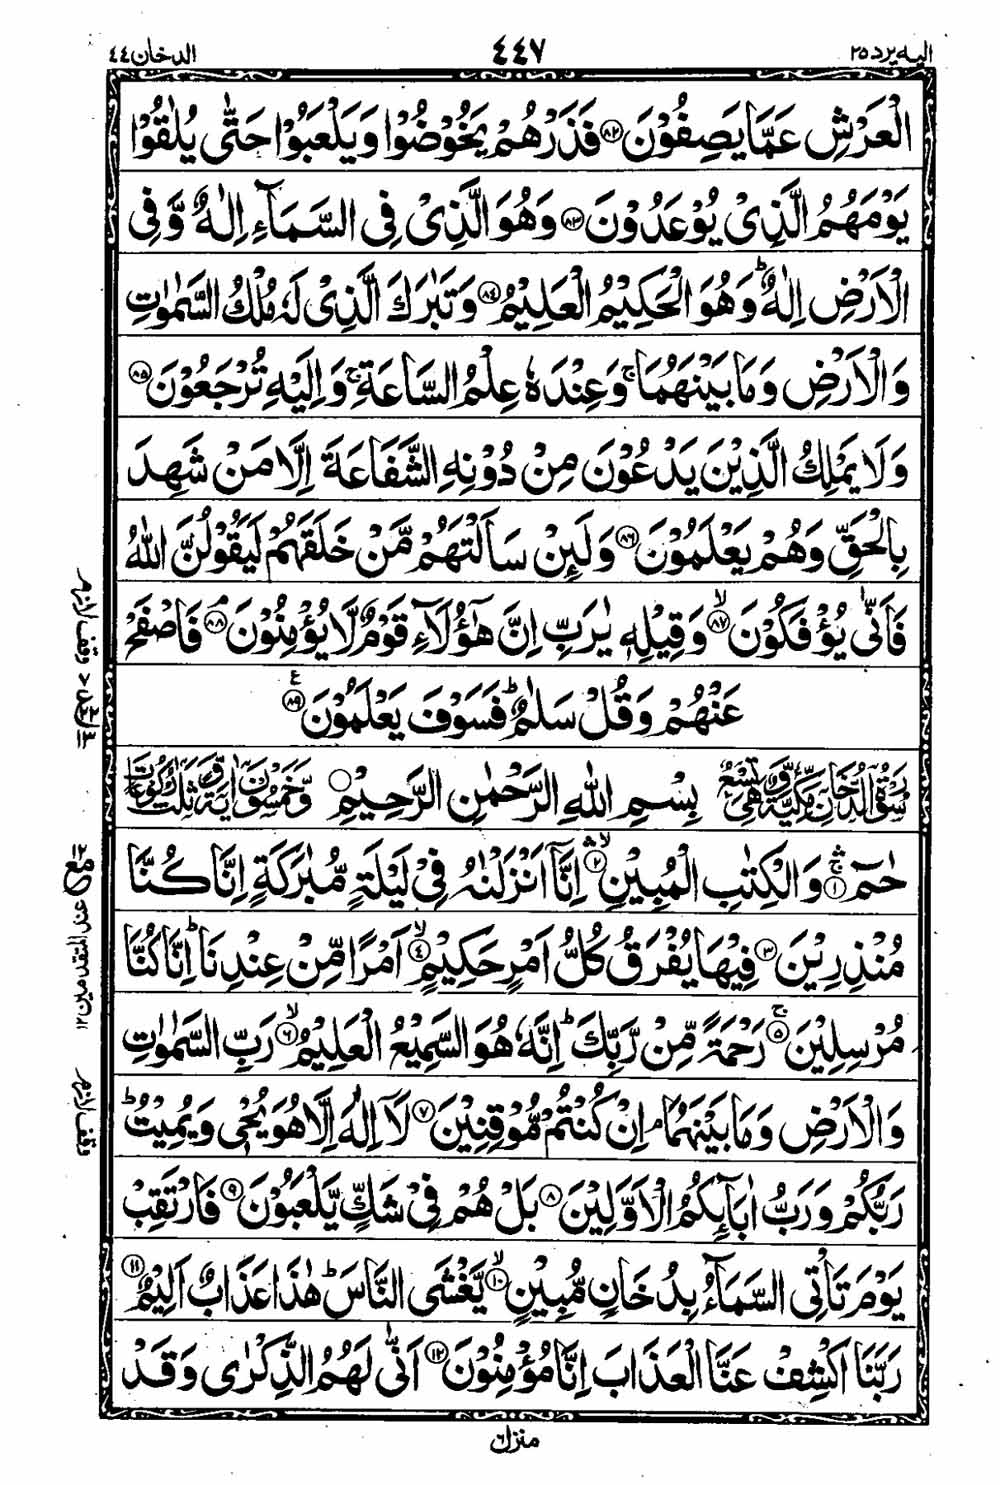 اليه يرد ٢٥
٤٤٧
الدخان ٤٤
الْعَرْشِ عَمَّا يَصِفُوْنَ ﴿٨٢﴾ فَذَرْهُمْ يَخُوْضُوْا وَيَلْعَبُوْا حَتّٰى يُلٰقُوْا
يَوْمَهُمُ الَّذِىْ يُوْعَدُوْنَ ﴿٨٣﴾ وَهُوَ الَّذِىْ فِى السَّمَآءِ اِلٰهٌ وَّفِى
الْاَرْضِ اِلٰهٌ ؕ وَهُوَ الْحَكِيْمُ الْعَلِيْمُ ﴿٨٤﴾ وَتَبٰرَكَ الَّذِىْ لَهٗ مُلْكُ السَّمٰوٰتِ
وَالْاَرْضِ وَمَا بَيْنَهُمَا ۚ وَعِنْدَهٗ عِلْمُ السَّاعَةِ ۚ وَاِلَيْهِ تُرْجَعُوْنَ ﴿٨٥﴾
وَلَا يَمْلِكُ الَّذِيْنَ يَدْعُوْنَ مِنْ دُوْنِهِ الشَّفَاعَةَ اِلَّا مَنْ شَهِدَ
بِالْحَقِّ وَهُمْ يَعْلَمُوْنَ ﴿٨٦﴾ وَلَئِنْ سَاَلْتَهُمْ مَّنْ خَلَقَهُمْ لَيَقُوْلُنَّ اللّٰهُ
فَاَنّٰى يُؤْفَكُوْنَ ۙ﴿٨٧﴾ وَقِيْلِهٖ يٰرَبِّ اِنَّ هٰٓؤُلَآءِ قَوْمٌ لَّا يُؤْمِنُوْنَ ۘ﴿٨٨﴾ فَاصْفَحْ
عَنْهُمْ وَقُلْ سَلٰمٌ ؕ فَسَوْفَ يَعْلَمُوْنَ ﴿٨٩﴾ ع
سُوْرَةُ الدُّخَانِ مَكِّيَّةٌ وَّهِىَ تِسْعٌ بِسْمِ اللّٰهِ الرَّحْمٰنِ الرَّحِيْمِ ۝ وَّخَمْسُوْنَ اٰيَةً وَّثَلٰثُ رُكُوْعَاتٍ
حٰمٓ ۚۛ﴿١﴾ وَالْكِتٰبِ الْمُبِيْنِ ۙۛ﴿٢﴾ اِنَّاۤ اَنْزَلْنٰهُ فِىْ لَيْلَةٍ مُّبٰرَكَةٍ اِنَّا كُنَّا
مُنْذِرِيْنَ ﴿٣﴾ فِيْهَا يُفْرَقُ كُلُّ اَمْرٍ حَكِيْمٍ ۙ﴿٤﴾ اَمْرًا مِّنْ عِنْدِنَا ؕ اِنَّا كُنَّا
مُرْسِلِيْنَ ۚ﴿٥﴾ رَحْمَةً مِّنْ رَّبِّكَ ؕ اِنَّهٗ هُوَ السَّمِيْعُ الْعَلِيْمُ ۙ﴿٦﴾ رَبِّ السَّمٰوٰتِ
وَالْاَرْضِ وَمَا بَيْنَهُمَا ۘ اِنْ كُنْتُمْ مُّوْقِنِيْنَ ﴿٧﴾ لَاۤ اِلٰهَ اِلَّا هُوَ يُحْىٖ وَيُمِيْتُ ؕ
رَبُّكُمْ وَرَبُّ اٰبَآئِكُمُ الْاَوَّلِيْنَ ﴿٨﴾ بَلْ هُمْ فِىْ شَكٍّ يَّلْعَبُوْنَ ﴿٩﴾ فَارْتَقِبْ
يَوْمَ تَاْتِى السَّمَآءُ بِدُخَانٍ مُّبِيْنٍ ۙ﴿١٠﴾ يَّغْشَى النَّاسَ ؕ هٰذَا عَذَابٌ اَلِيْمٌ ﴿١١﴾
رَبَّنَا اكْشِفْ عَنَّا الْعَذَابَ اِنَّا مُؤْمِنُوْنَ ﴿١٢﴾ اَنّٰى لَهُمُ الذِّكْرٰى وَقَدْ
وقف لازم
عند المتقدمين ١٢
وقف لازم
منزل ٦